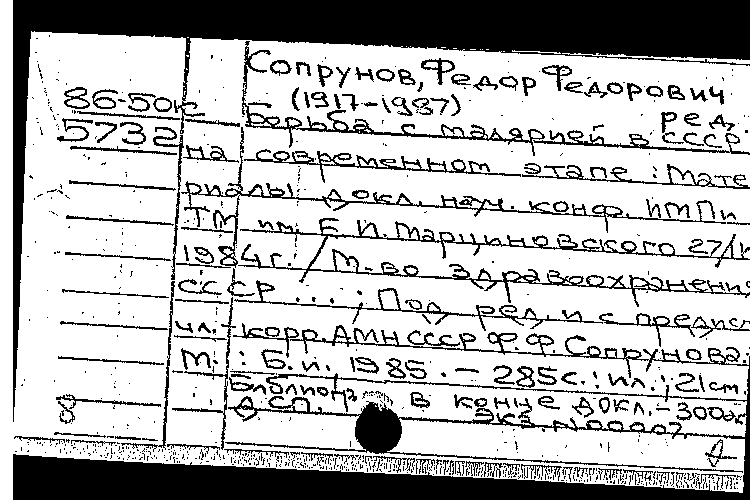 Сопрунов, Федор Федорович
(1917-1987) ред.
86-50к
5732
Борьба с малярией в СССР
на современном этапе : Мате
риалы докл. науч. конф. ИМПи
ТМ им. Е.И. Марциновского 27/
1984г. / М-во здравоохранения
СССР ... ; Под ред. и с предис
чл.-корр. АМН СССР Ф.Ф. Сопрунова.
М. : Б.и., 1985. - 285с. : ил. ; 21см.
Библиогр. в конце докл. - 300эк
ДСП. Экз. N00007.